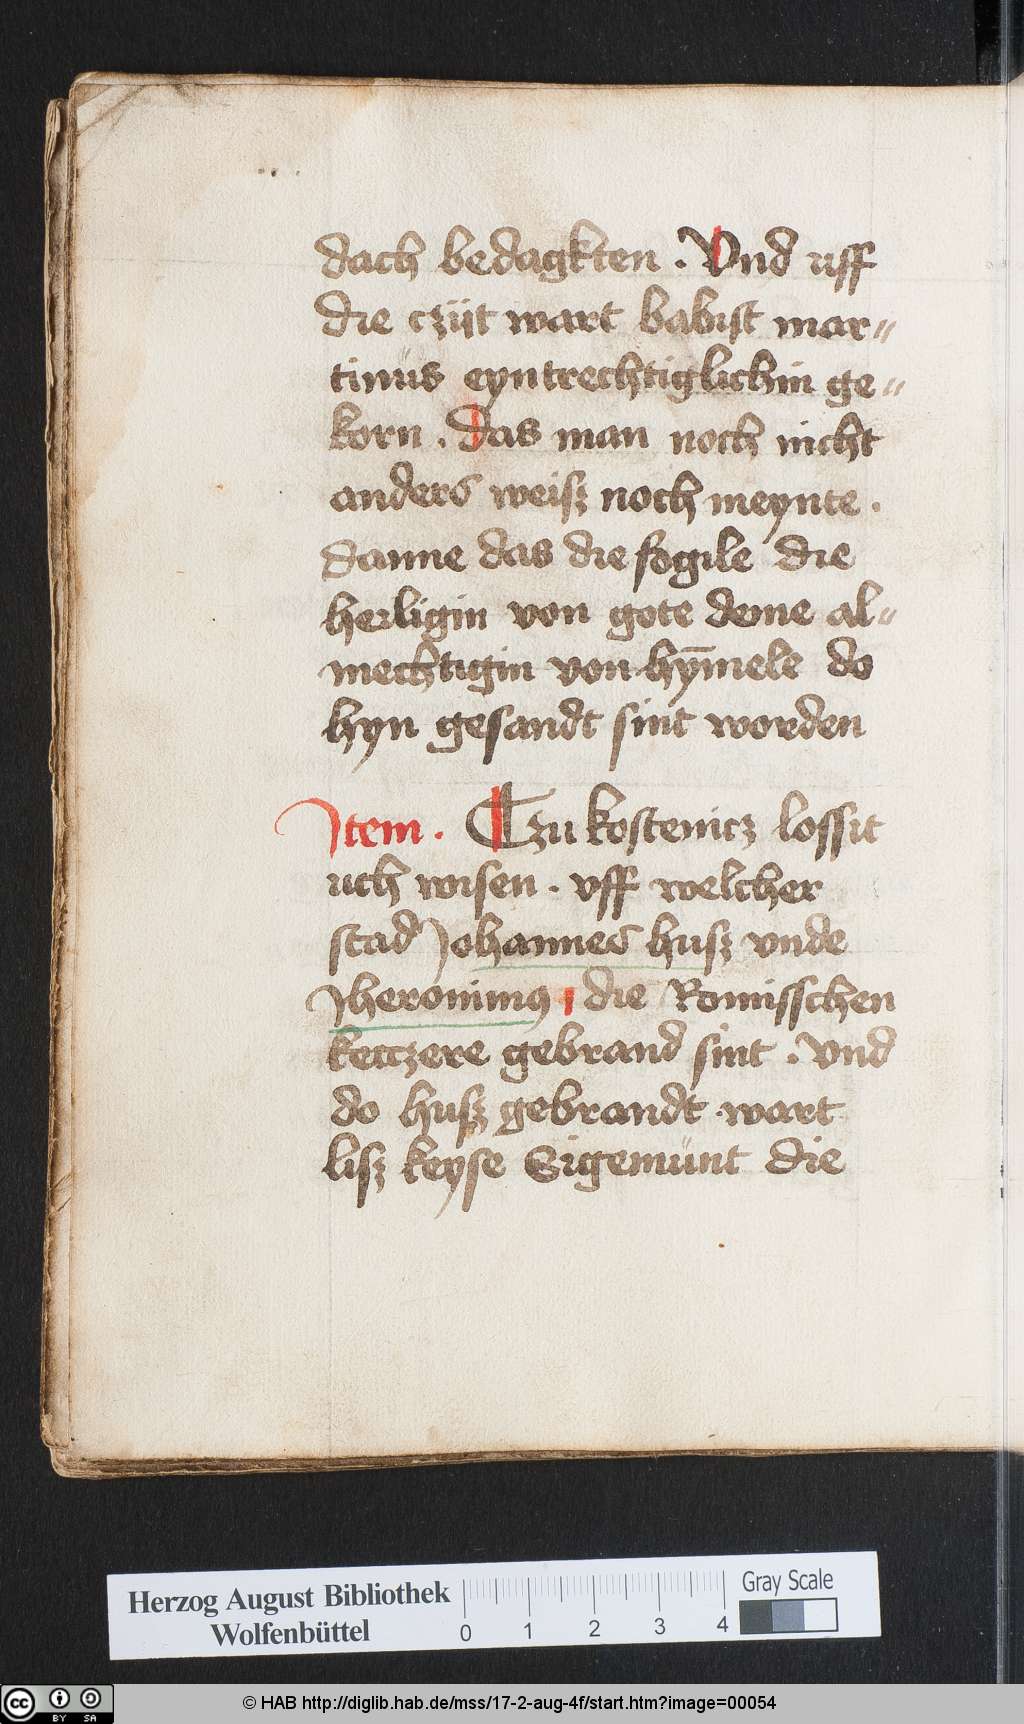 dach bedagkten . Vnd uff
die czijt wart babist mar〃
tinus eyntrechtiglichin ge〃
korn . das man noch nicht
anders weisz noch meynte .
danne das die fogile die
herligin von gote deme al〃
mechtigin von hym̄ele do
hyn gesandt sint worden
Item . Tzu kostenicz lossit
uch wisen . vff welcher
stad Johannes husz vnde
Jheronimꝰ die Romisschen
ketczere gebrand sint . vnd
do husz gebrandt wart
lisz keyse Sigemunt die
Herzog August Bibliothek
Wolfenbüttel
0 1 2 3 4
Gray Scale
cc BY SA
© HAB http://diglib.hab.de/mss/17-2-aug-4f/start.htm?image=00054